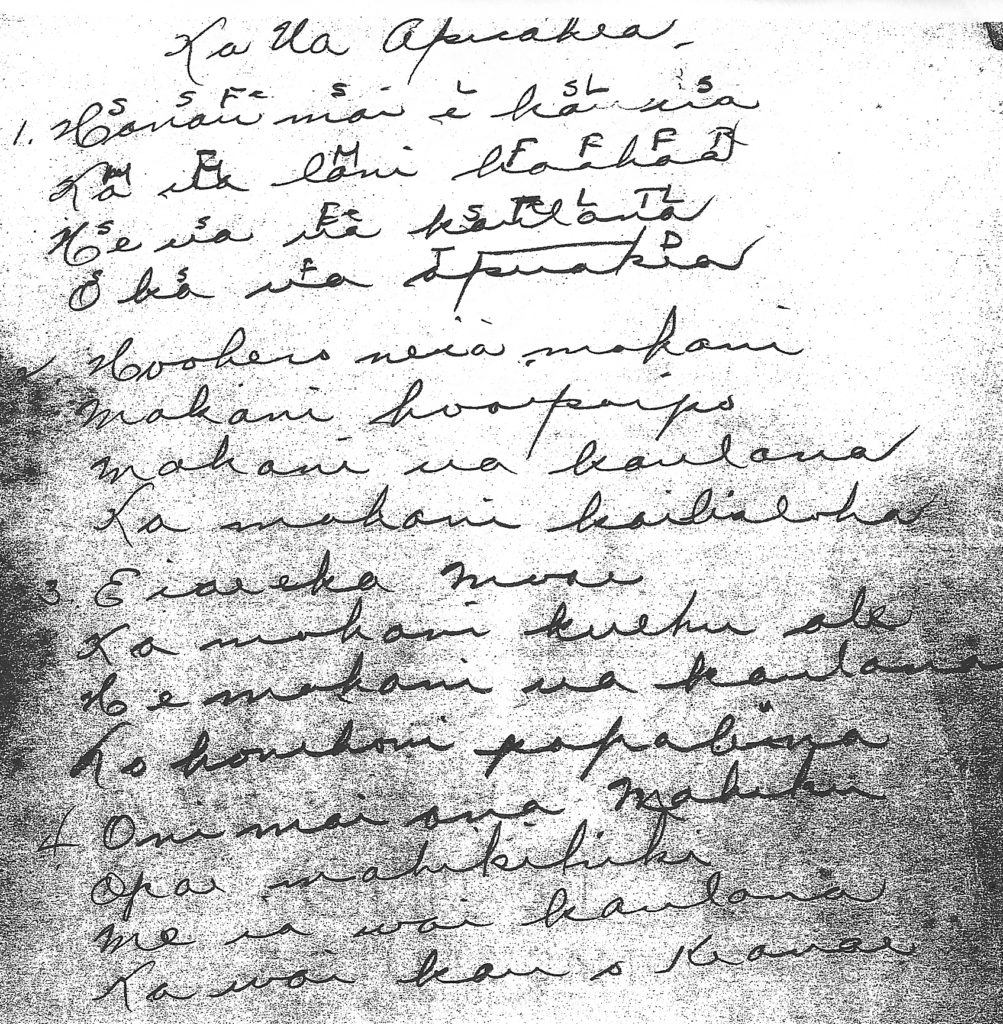 Ka Ua Apuakea -
S S Fe S L SL S
1. Hanau mai e ka ua
M M M F F F R
Ka ua lani haahaa
S S Fe S Fe L TL
He ua ua kaulana
S S F T D
O ka ua apuakea
2. Hoohero neia makani
Makani hooipoipo
Makani ua kaulana
Ka makani kailialoha
3. Eiaieka Moae
Ka makani kuehu ale
He makani ua kaulana
Ko konikoni papalina
4. Oni mai ana Makiki
Opae mahikihiki
Me ia wai kaulana
Ka wai kau o Keanae